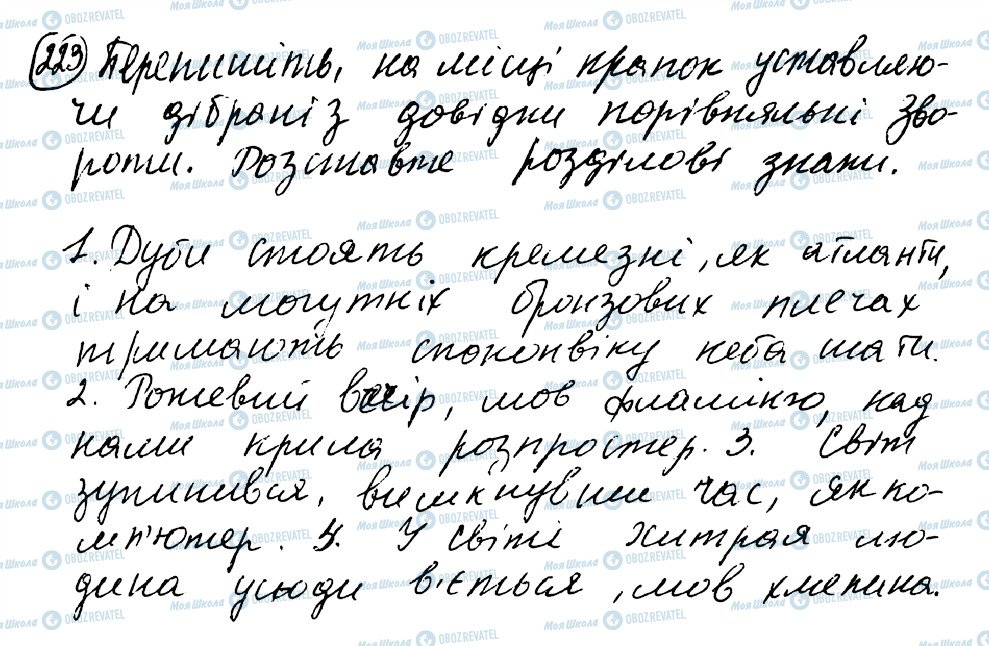 223 Перепишіть, на місці крапок уставлю-
чи дібрані з довідки порівняльні зво-
роти. Розставте розділові знаки.
1. Дуби стоять кремезні, як атланти,
і на могутніх бронзових плечах
тримають споконвіку неба шати.
2. Рожевий вечір, мов фламінго, над
нами крила розпростер. 3. Світ
зупинився, вимкнувши час, як ко-
мп'ютер. 4. У світі хитрая лю-
дина усюди в'ється, мов хмелина.